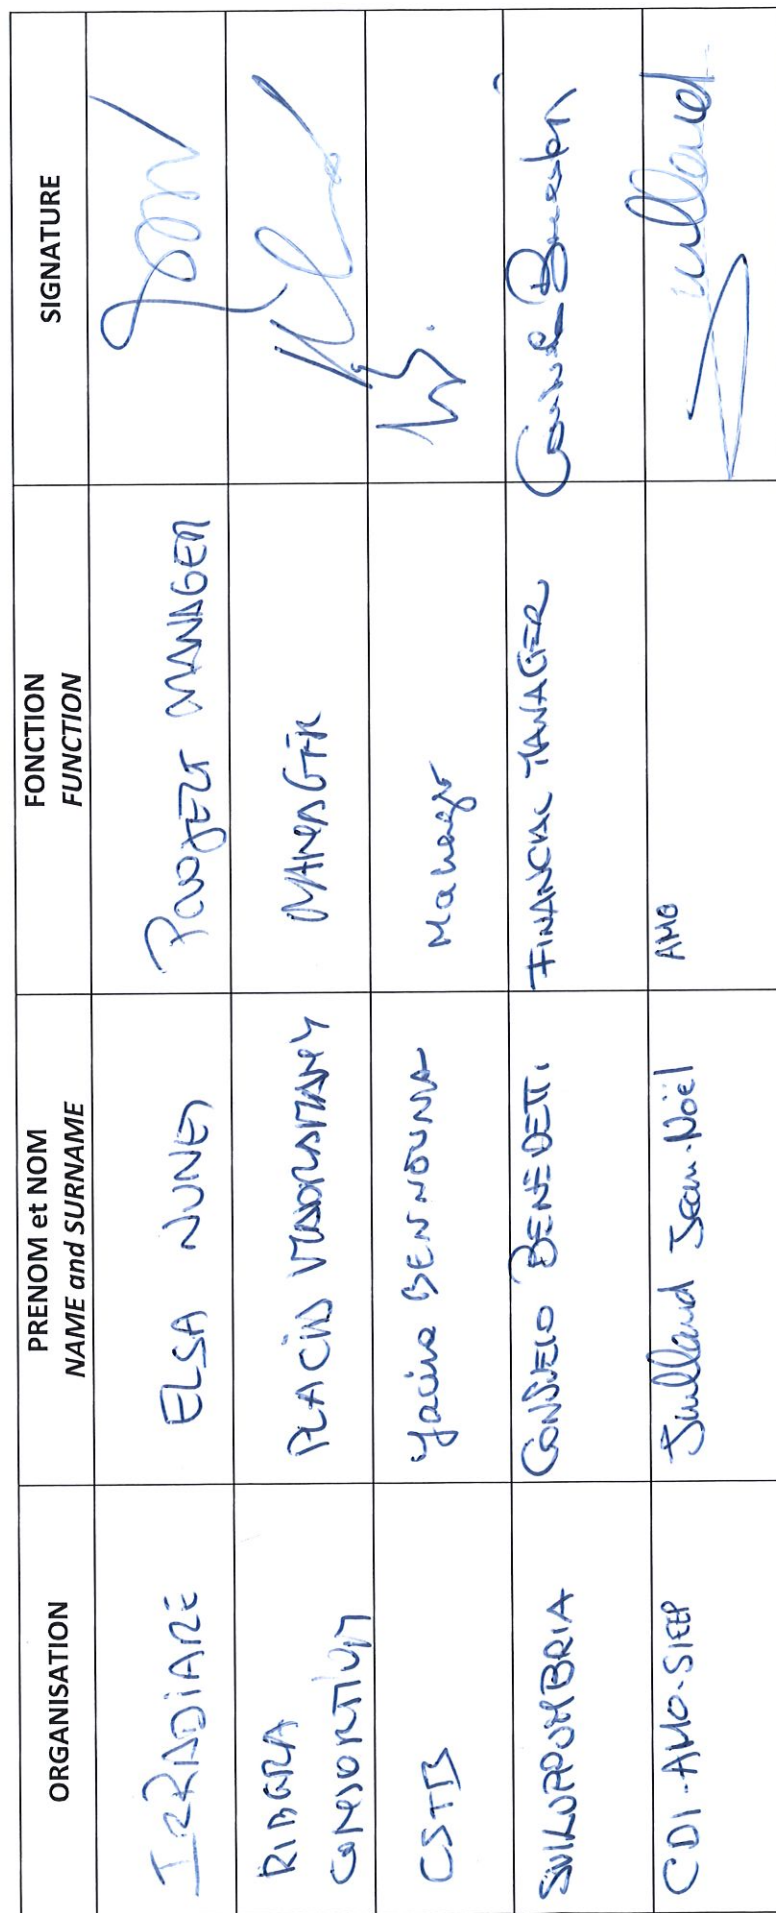 ORGANISATION
PRENOM et NOM
NAME and SURNAME
FONCTION
FUNCTION
SIGNATURE
IRRADIARE
ELSA NUNES
PROJECT MANAGER
RIBERA
CONSORTIUM
PLACID MADRAMANY
MANAGER
CSTB
Yacine BENNOUNA
Manager
SVILUPPUMBRIA
CONSUELO BENEDETTI
FINANCIAL MANAGER
Consuelo Benedetti
CDI-AMO-SIEEP
Juilland Jean-Noël
AMO
Juilland